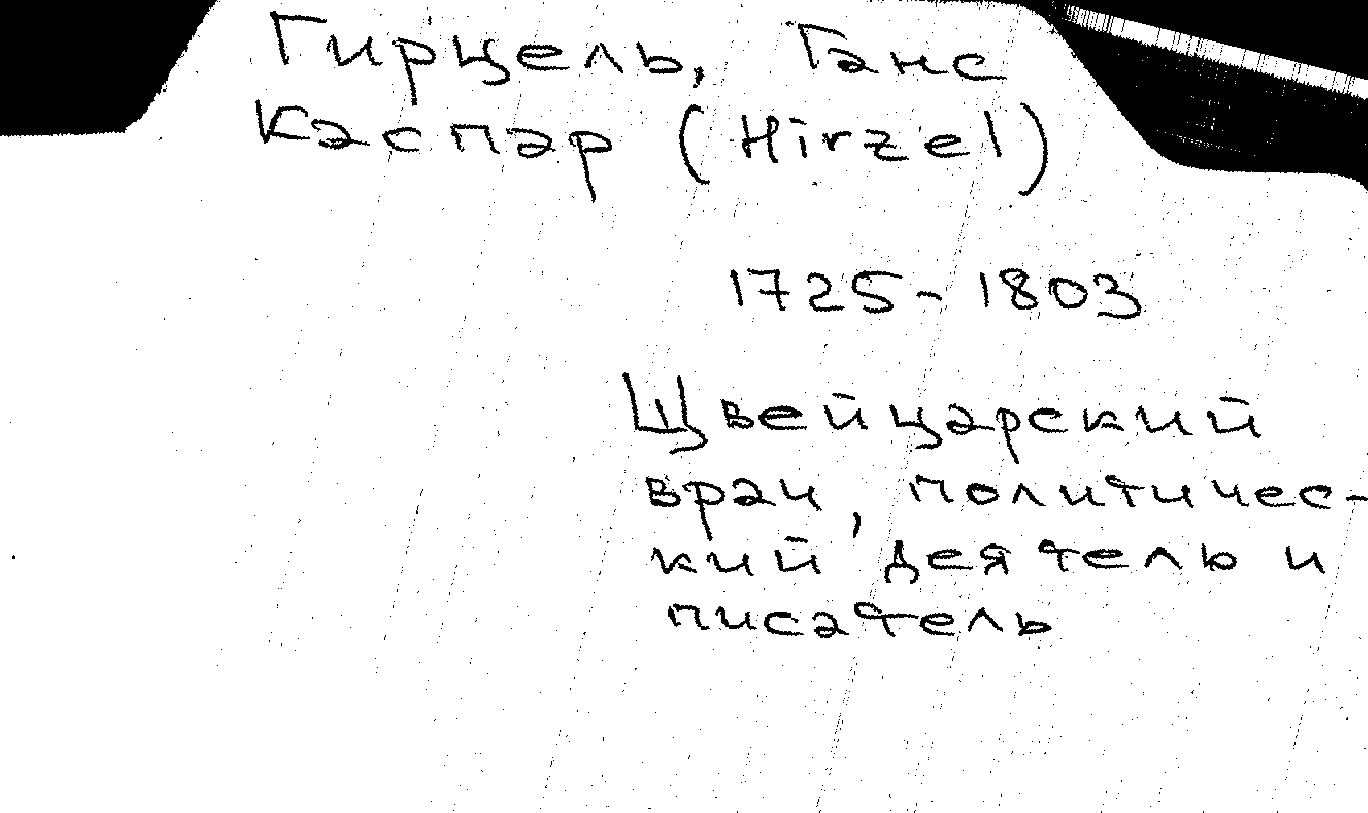 Гирцель, Ганс
Каспар (Hirzel)
1725-1803
Швейцарский
врач, политичес-
кий деятель и
писатель